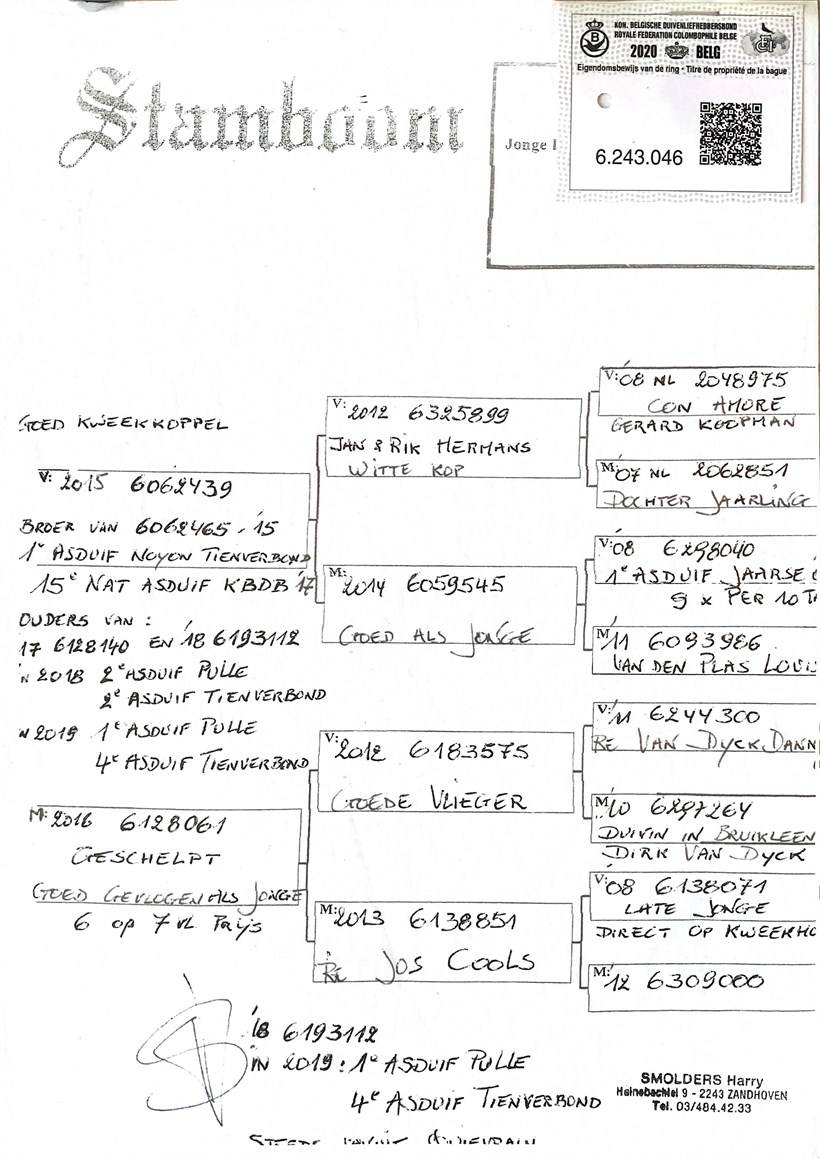 KON. BELGISCHE DUIVENLIEFHEBBERSBOND
ROYALE FEDERATION COLOMBOPHILE BELGE
2020 BELG
Eigendomsbewijs van de ring - Titre de propriété de la bague
6.243.046
Stamboom
Jonge
GOED KWEEKKOPPEL
V: 2015 6062439
BROER VAN 6062465-'15
1e ASDUIF NOYON TIENVERBOND
15e NAT ASDUIF KBDB '17
OUDERS VAN :
17 6128140 EN '18 6193112
IN 2018 2e ASDUIF PULLE
2e ASDUIF TIENVERBOND
IN 2019 1e ASDUIF PULLE
4e ASDUIF TIENVERBOND
M: 2016 6128061
GESCHELPT
GOED GEVLOGEN ALS JONGE
6 op 7 VL Prijs
V: 2012 6325899
JAN & RIK HERMANS
WITTE KOP
M: 2014 6059545
GOED ALS JONGE
V: 2012 6183575
GOEDE VLIEGER
M: 2013 6138851
RE JOS COOLS
V: '08 NL 2048975
CON AMORE
GERARD KOOPMAN
M: '07 NL 2062851
DOCHTER JAARLING
V: '08 6298040
1e ASDUIF JAARSE
9 x PER 10T
M '11 6093986
VAN DEN PLAS
V: '11 6244300
RE VAN DYCK DANN
M '10 6297264
DUIVIN IN BRUIKLEEN
DIRK VAN DYCK
V: '08 6138071
LATE JONGE
DIRECT OP KWEEKHO
M: '12 6309000
'18 6193112
IN 2019 : 1e ASDUIF PULLE
4e ASDUIF TIENVERBOND
SMOLDERS Harry
Heinebachlei 9 - 2243 ZANDHOVEN
Tel. 03/484.42.33